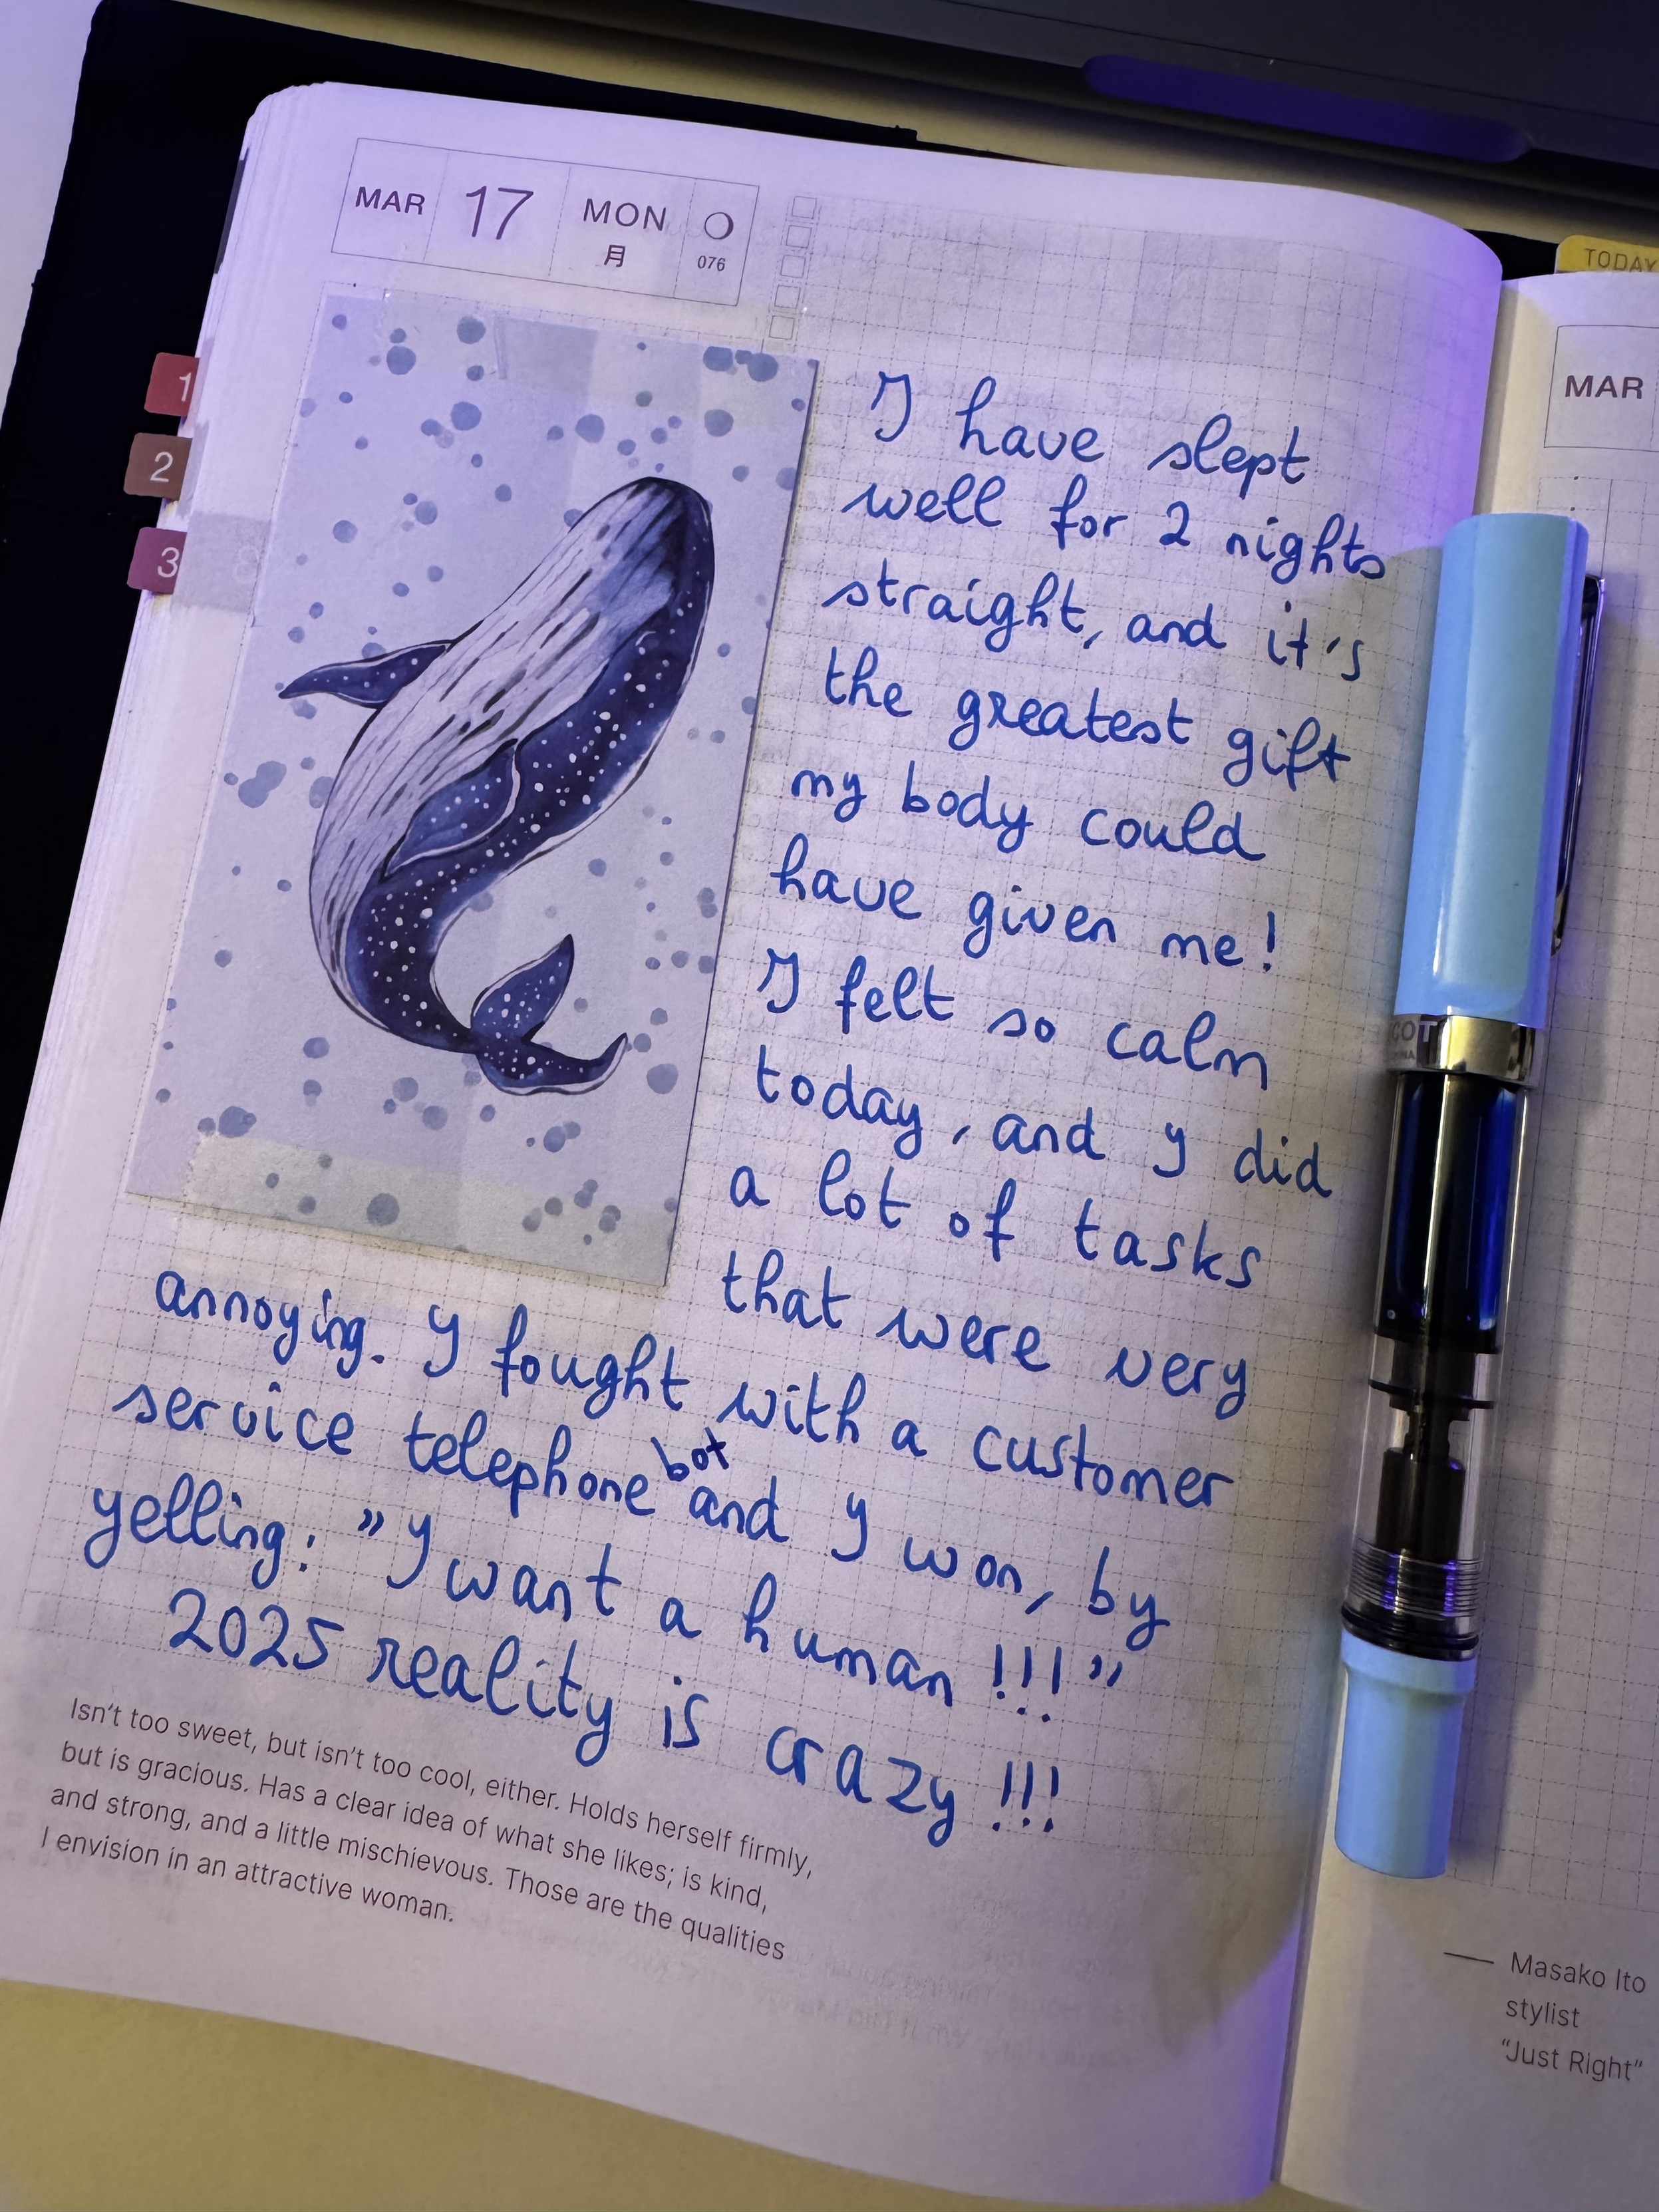 MAR 17 MON
月 076
TODAY
MAR
1
2
3
I have slept
well for 2 nights
straight, and it's
the greatest gift
my body could
have given me!
I felt so calm
today, and I did
a lot of tasks
that were very
annoying. I fought with a customer
service telephone bot and I won, by
yelling: "I want a human!!!"
2025 reality is crazy!!!
Isn't too sweet, but isn't too cool, either. Holds herself firmly,
but is gracious. Has a clear idea of what she likes; is kind,
and strong, and a little mischievous. Those are the qualities
I envision in an attractive woman.
— Masako Ito
stylist
"Just Right"